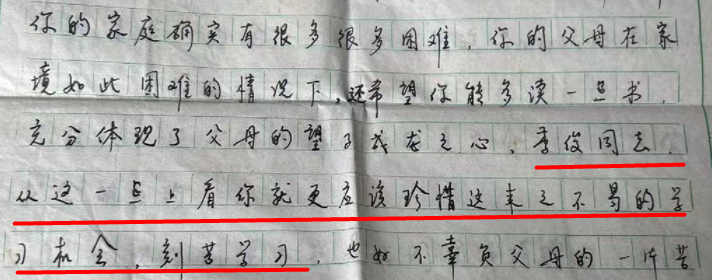 你的家庭确实有很多很多困难，你的父母在家
境如此困难的情况下，还希望你能多读一点书，
充分体现了父母的望子成龙之心，李俊同志，
从这一点上看你就更应该珍惜这来之不易的学
习机会，刻苦学习，也好不辜负父母的一片苦